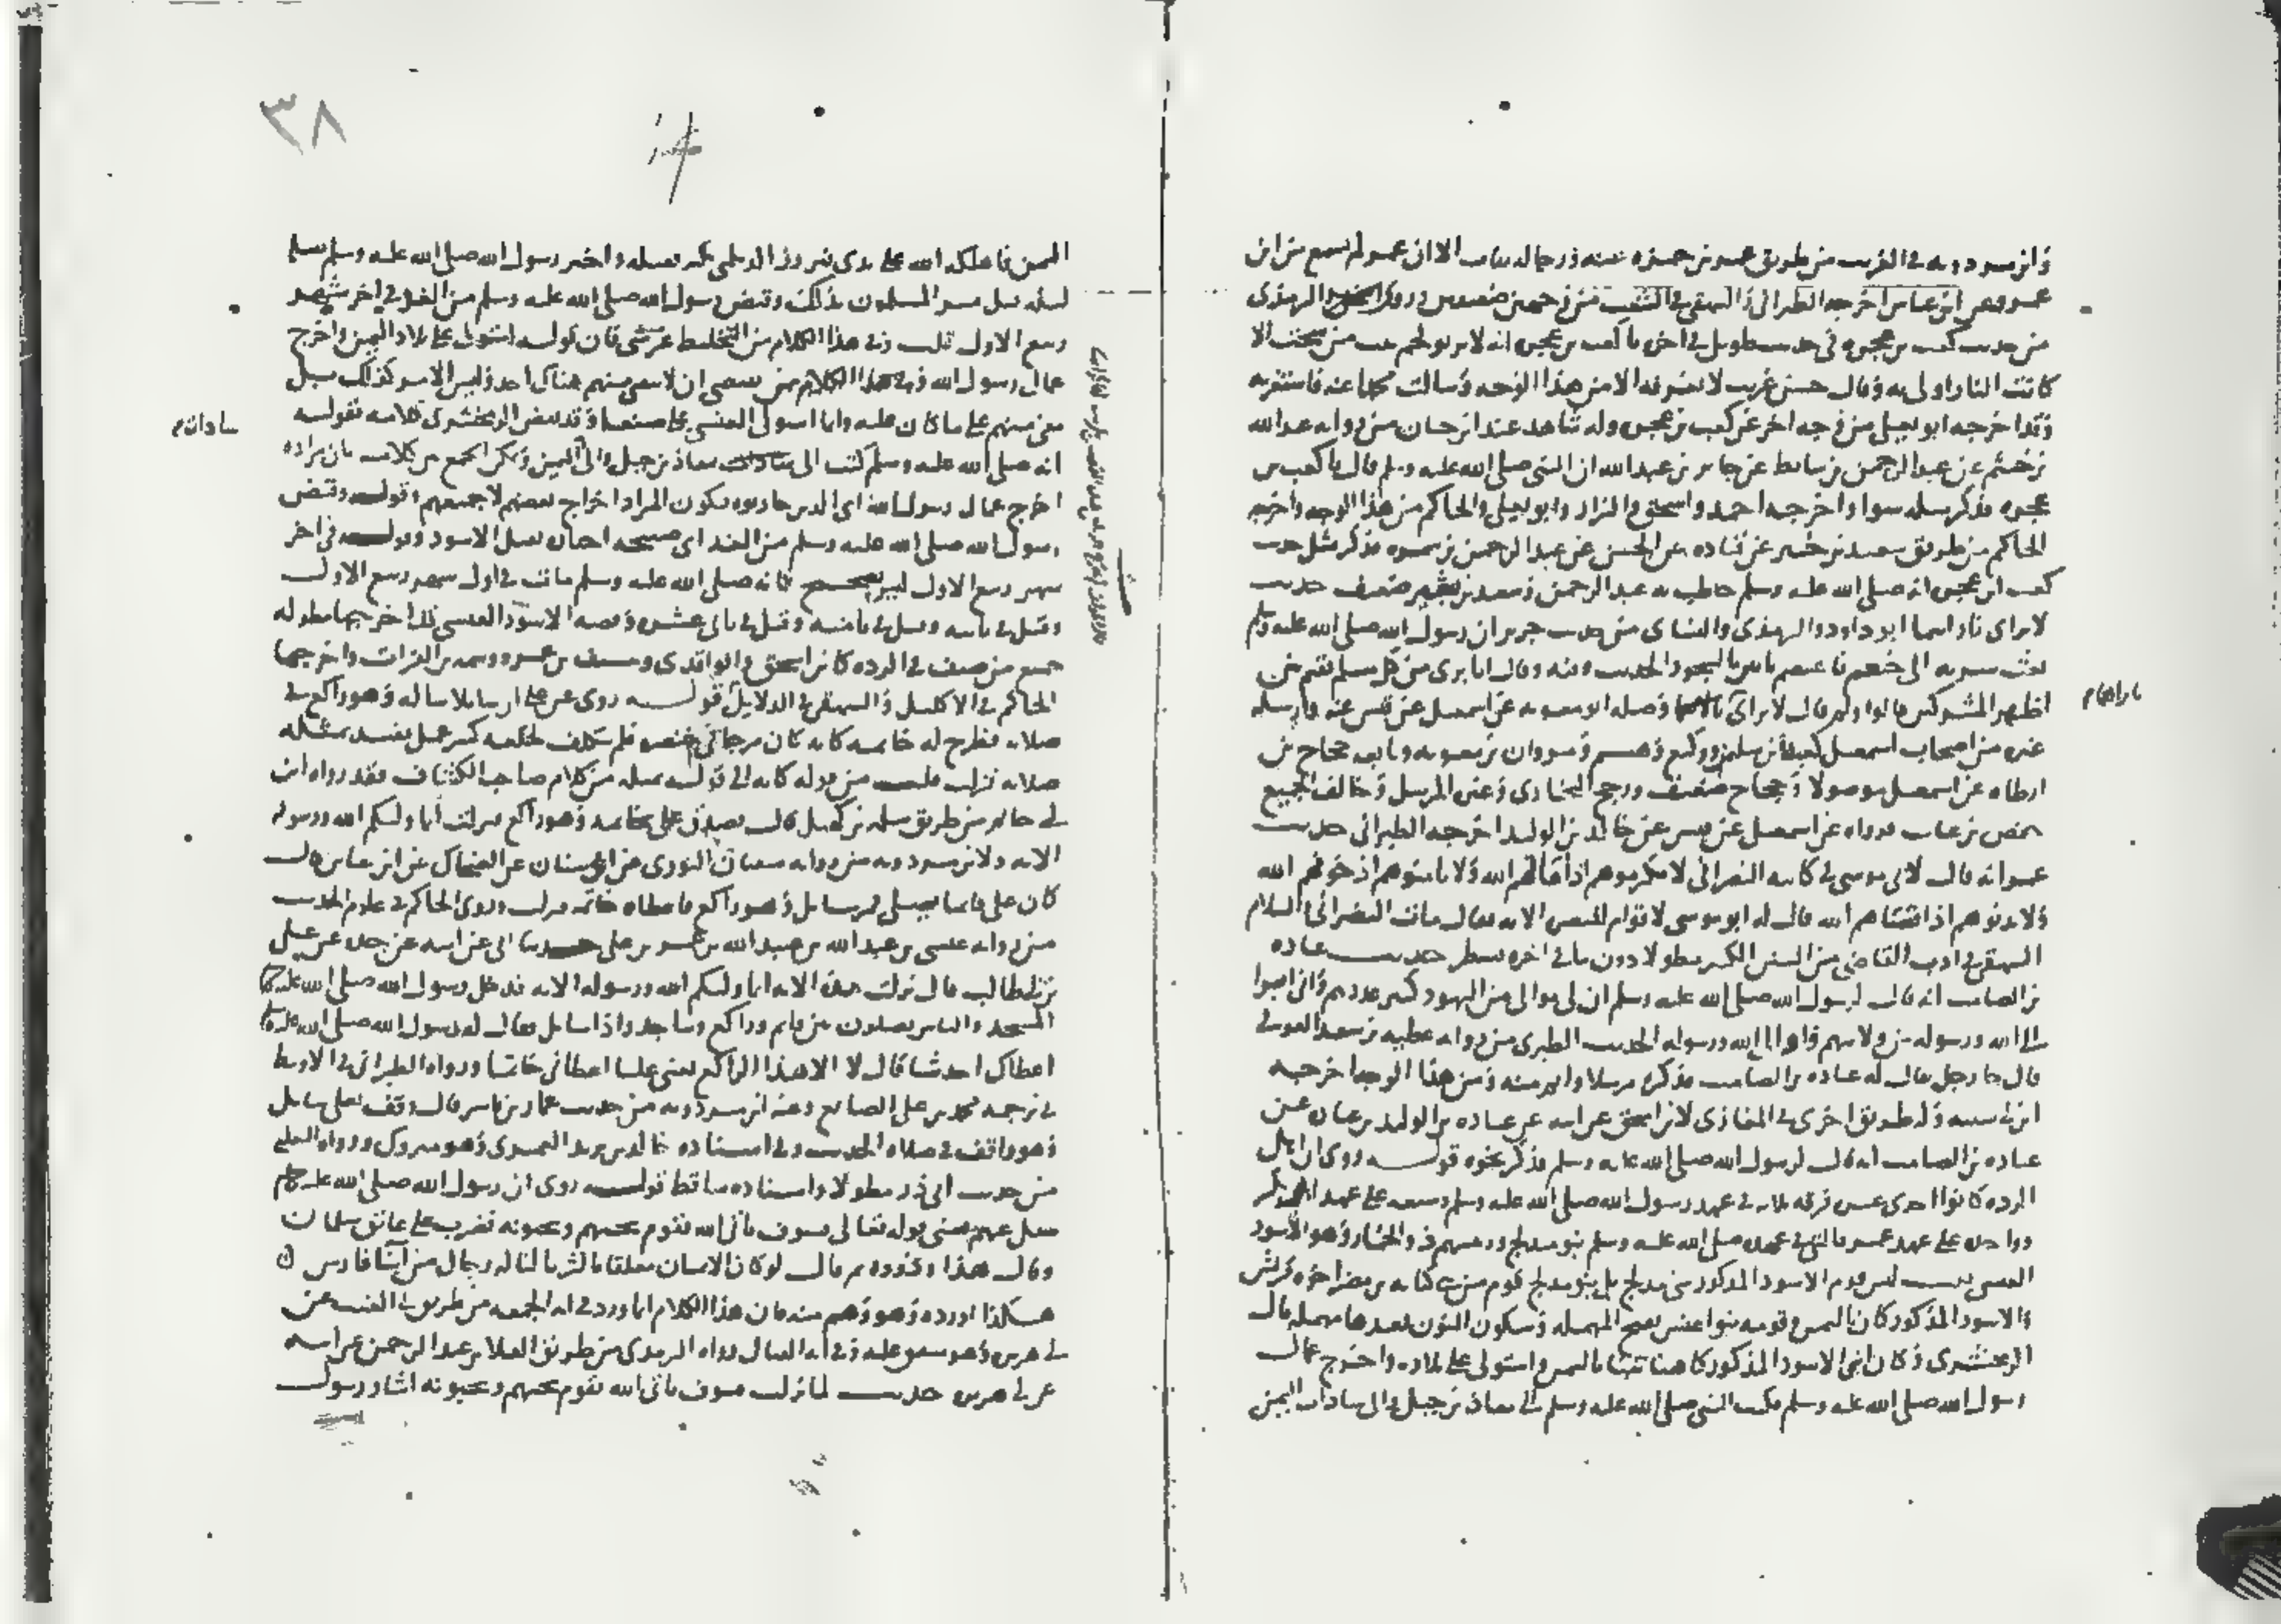 وابن مردويه في الغريب من طريق عمر بن حمزه عنه ورجاله ثقات الا ان عمر لم يسمع من ابن
عمر وعن ابن عباس اخرجه الطبراني والبيهقي في الشعب من وجهين ضعيفين وروى الترمذي
من حديث كعب بن عجره في حديث طويل في اخره يا كعب بن عجره انه لا يربو لحم نبت من سحت الا
كانت النار اولى به وقال حسن غريب لا نعرفه الا من هذا الوجه وسالت محمدا عنه فاستغربه
وقد اخرجه ابو يعلى من وجه اخر عن كعب بن عجره وله شاهد عند ابن حبان من روايه عبد الله
بن خثيم عن عبد الرحمن بن سابط عن جابر بن عبد الله ان النبي صلى الله عليه وسلم قال يا كعب بن
عجره فذكر مثله سوا واخرجه احمد واسحق والبزار وابو يعلى والحاكم من هذا الوجه واخرجه
الحاكم من طريق سعيد بن بشير عن قتاده عن الحسن عن عبد الرحمن بن سمره فذكر مثل حديث
كعب ابن عجره انه صلى الله عليه وسلم خاطب به عبد الرحمن وسعيد بن بشير ضعيف حديث
لا تراى ناراهما ابو داود والترمذي والنساي من حديث جرير ان رسول الله صلى الله عليه وسلم
بعث سريه الى خثعم فاعتصم ناس بالسجود الحديث وفيه وقال انا بري من كل مسلم يقيم بين
اظهر المشركين قالوا ولم قال لا تراى وصله ابو معويه عن اسمعيل عن قيس عنه وارسله
ناراهما
غيره من اصحاب اسمعيل كعبده بن سليمن ووكيع وهشيم ومروان بن معويه وتابعه حجاج بن
ارطاه عن اسمعيل موصولا وحجاج ضعيف ورجح البخاري وغيره المرسل وخالف الجميع
حفص بن غياث فرواه عن اسمعيل عن قيس عن خالد بن الوليد اخرجه الطبراني حديث
عمر انه قال لابي موسى في كاتبه النصراني لا تكرموهم اذ اهانهم الله ولا تامنوهم اذ خونهم الله
ولا تدنوهم اذ اقصاهم الله قال له ابو موسى لا قوام للبصره الا به فقال مات النصراني والسلام
البيهقي في ادب القاضي من السنن الكبير مطولا دون ما في اخره حديث عباده
بن الصامت انه قال لرسول الله صلى الله عليه وسلم ان لي موالي من اليهود كثير عددهم واني ابرا
الى الله ورسوله من ولايتهم واوالي الله ورسوله الحديث الطبري من روايه عطيه بن سعد العوفي
قال جا رجل يقال له عباده بن الصامت فذكره مرسلا واتم منه ومن هذا الوجه اخرجه
ابن ابي شيبه وله طريق اخرى في المغازي لابن اسحق عن ابيه عن عباده بن الوليد بن عباده عن
عباده بن الصامت انه قال لرسول الله صلى الله عليه وسلم فذكر نحوه قوله روي ان اهل
الرده كانوا احدى عشره فرقه ثلاثه في عهد رسول الله صلى الله عليه وسلم وسبعه على عهد ابي بكر
وواحده على عهد عمر فالتي في عهده صلى الله عليه وسلم بنو مدلج ورئيسهم ذو الخمار وهو الاسود
العنسي ليس قوم الاسود المذكور من مدلج بل بنو مدلج قوم من بني كنانه بن مضر اخوه قريش
والاسود المذكور كان باليمن وقومه بنو عنس بفتح المهمله وسكون النون بعدها مهمله قال
الزمخشري وكان اي الاسود المذكور كاهنا تنبا باليمن واستولى على بلاده واخرج عمال
رسول الله صلى الله عليه وسلم فكتب النبي صلى الله عليه وسلم الى معاذ بن جبل والى سادات اليمن
٣٨
اليمن فاهلكه الله على يدي فيروز الديلمي فقتله واخبر رسول الله صلى الله عليه وسلم
ليله قتل فسر المسلمون بذلك وقبض رسول الله صلى الله عليه وسلم من الغد في اخر شهر
ربيع الاول قلت وفي هذا الكلام من التخليط غير شي فان قوله استولى على بلاد اليمن واخرج
عمال رسول الله وفي هذا الكلام يقتضي ان لا يبقى منهم هناك احد وليس الامر كذلك بل
بقي منهم على ما كان عليه وانما استولى العنسي على صنعا وقد نقض الزمخشري كلامه بقوله
انه صلى الله عليه وسلم كتب الى معاذ بن جبل والى اليمن ويمكن الجمع من كلامه بان مراده
سادات
اخرج عمال رسول الله اي الذين حاربوه فيكون المراد اخراج بعضهم لا جميعهم وقوله وقبض
رسول الله صلى الله عليه وسلم من الغد اي صبيحه قتل الاسود وقوله في اخر
شهر ربيع الاول ليس بصحيح فانه صلى الله عليه وسلم مات في اول شهر ربيع الاول
وقيل في ثانيه وقيل في ثامنه وقيل في ثاني عشره وقصه الاسود العنسي قد اخرجها مطوله
جمع من صنف في الرده كابن اسحق والواقدي وسيف بن عمر ووثيمه بن الفرات واخرجها
الحاكم في الاكليل والبيهقي في الدلايل قوله روي عن علي ان سايلا ساله وهو راكع في
صلاته فطرح له خاتمه كانه كان مرجا في خنصره فلم يتكلف لخلعه كثير عمل يفسد بمثله
صلاته نزلت قلت من قوله كانه الى قوله بمثله من كلام صاحب الكشاف فقد رواه ابن
ابي حاتم من طريق سلمه بن كهيل قال تصدق علي بخاتمه وهو راكع فنزلت انما وليكم الله ورسوله
الايه ولابن مردويه من روايه سفيان الثوري عن ابي سنان عن الضحاك عن ابن عباس قال
كان علي قايما يصلي فمر سايل وهو راكع فاعطاه خاتمه فنزلت وروى الحاكم في علوم الحديث
من روايه عيسى بن عبد الله بن عبيد الله بن عمر بن علي حدثنا ابي عن ابيه عن جده عن علي
بن ابي طالب قال نزلت هذه الايه انما وليكم الله ورسوله الايه فدخل رسول الله صلى الله عليه وسلم
المسجد والناس يصلون بين قايم وراكع وساجد واذا سايل فقال له رسول الله صلى الله عليه وسلم
اعطاك احد شيا قال لا الا هذا الراكع يعني عليا اعطاني خاتما ورواه الطبراني في الاوسط
في ترجمه محمد بن علي الصايغ وعند ابن مردويه من حديث عمار بن ياسر قال وقف بعلي سايل
وهو واقف في صلاه الحديث وفي اسناده خالد بن يزيد العمري وهو متروك ورواه الثعلبي
من حديث ابي ذر مطولا واسناده ساقط قوله روي ان رسول الله صلى الله عليه وسلم
سيل عنهم يعني قوله تعالى فسوف ياتي الله بقوم يحبهم ويحبونه فضرب على عاتق سلمان
وقال هذا وذووه ثم قال لو كان الايمان معلقا بالثريا لناله رجال من ابنا فارس
هكذا اورده وهو وهم منه فان هذا الكلام انما ورد في ايه الجمعه من طريق ابي الغيث عن
ابي هريره وهو متفق عليه وفي ايه القتال رواه الترمذي من طريق العلا بن عبد الرحمن عن ابيه
عن ابي هريره حديث لما نزلت فسوف ياتي الله بقوم يحبهم ويحبونه اشار رسول